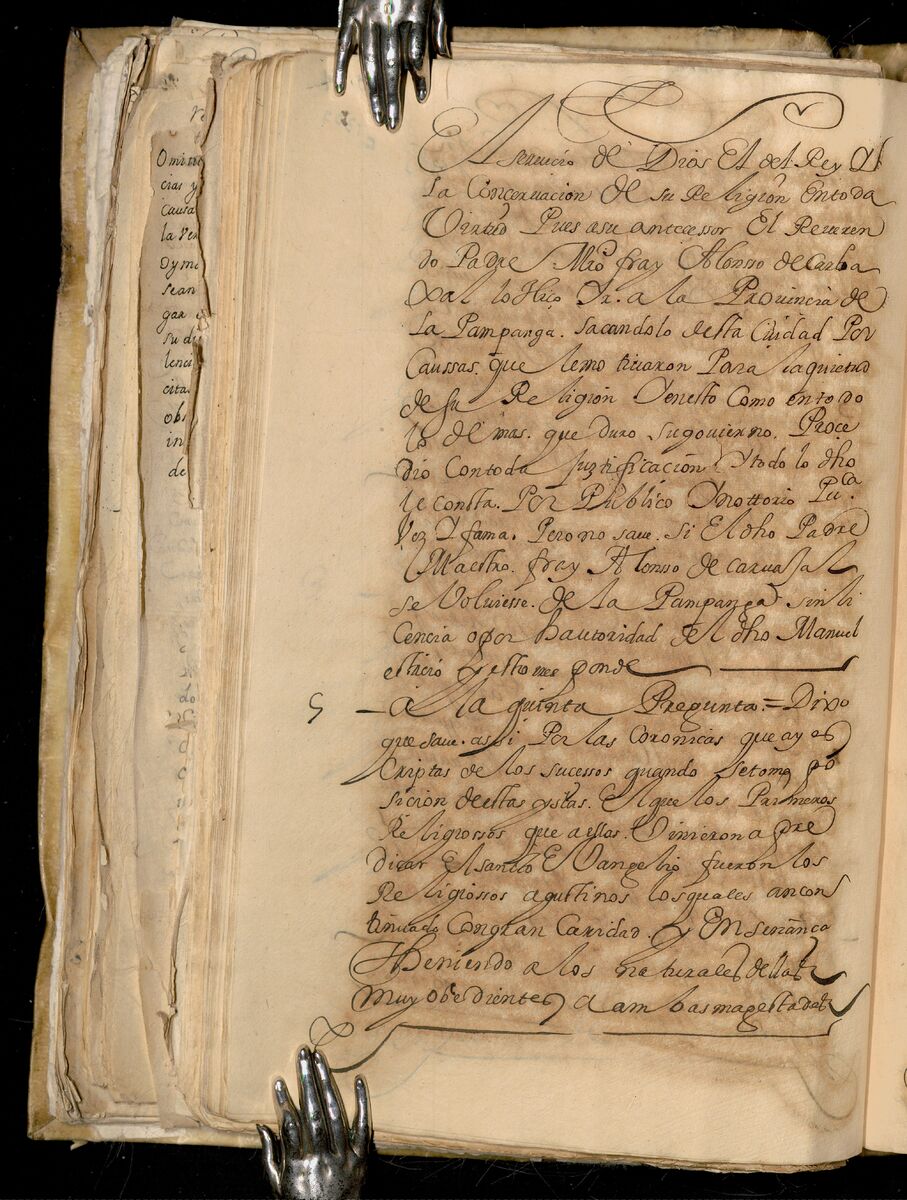 Omi
cias y
causa
la Ver
Oyme
sean
gar
su di
lenci
cita
obs
in
de
A seruicio de Dios El del Rey Y
La Conceruacion de su Religion En toda
Virtud Pues a su antecessor El Reueren
do Padre Mro fray Alonso de Carba
xal lo Hiço Yr a la Prouincia de
La Pampanga. sacandolo desta Ciudad Por
Caussas. que le mo tiuaron Para la quietud
de su Religion Y en esto Como en to do
lo de mas. que duro su gouierno. Proce
dio Con toda Justificacion Y todo lo dho
le consta. Por Publico Y nottorio Pu.ca
Voz Y fama. Pero no saue. si El dho Padre
Maestro. fray Alonso de caruajal
se Voluiesse. de la Pampanga sin li
cencia o por hautoridad del dho Manuel
estacio y esto res ponde
5 – a la quinta Pregunta. = Dixo
que saue. assi Por las Coronicas que ay es
Criptas de los sucessos quando se tomo po
sicion destas yslas. El que los Primeros
Religiossos que a ellas. Vinieron a pre
dicar El sancto EVangelio fueron los
Religiossos agustinos los quales an con
tinuado Con gran Caridad. y Enseñanca
theniendo a los naturales dellas
muy obedientes a am bas magestades